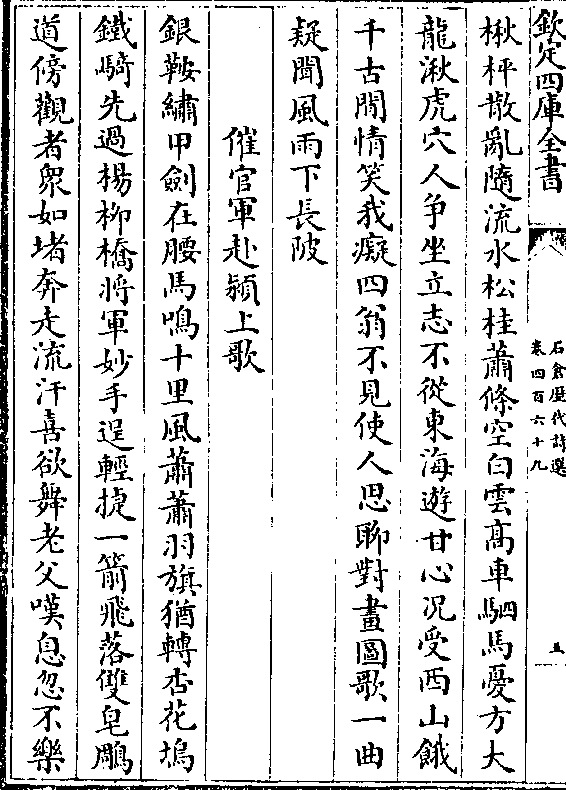 欽定四庫全書
石倉歷代詩選
卷四百六十九
五
楸枰散亂隨流水松桂蕭條空白雲髙車駟馬憂方大
龍湫虎穴人争坐立志不從東海遊甘心况受西山餓
千古閒情笑我癡四翁不見使人思聊對畫圖歌一曲
疑聞風雨下長陂
催官軍赴潁上歌
銀鞍繡甲劍在腰馬鳴十里風蕭蕭羽旗猶轉杏花塢
鐵騎先過楊柳橋將軍妙手逞輕捷一箭飛落雙皂鵰
道傍觀者衆如堵奔走流汗喜欲舞老父嘆息忽不樂